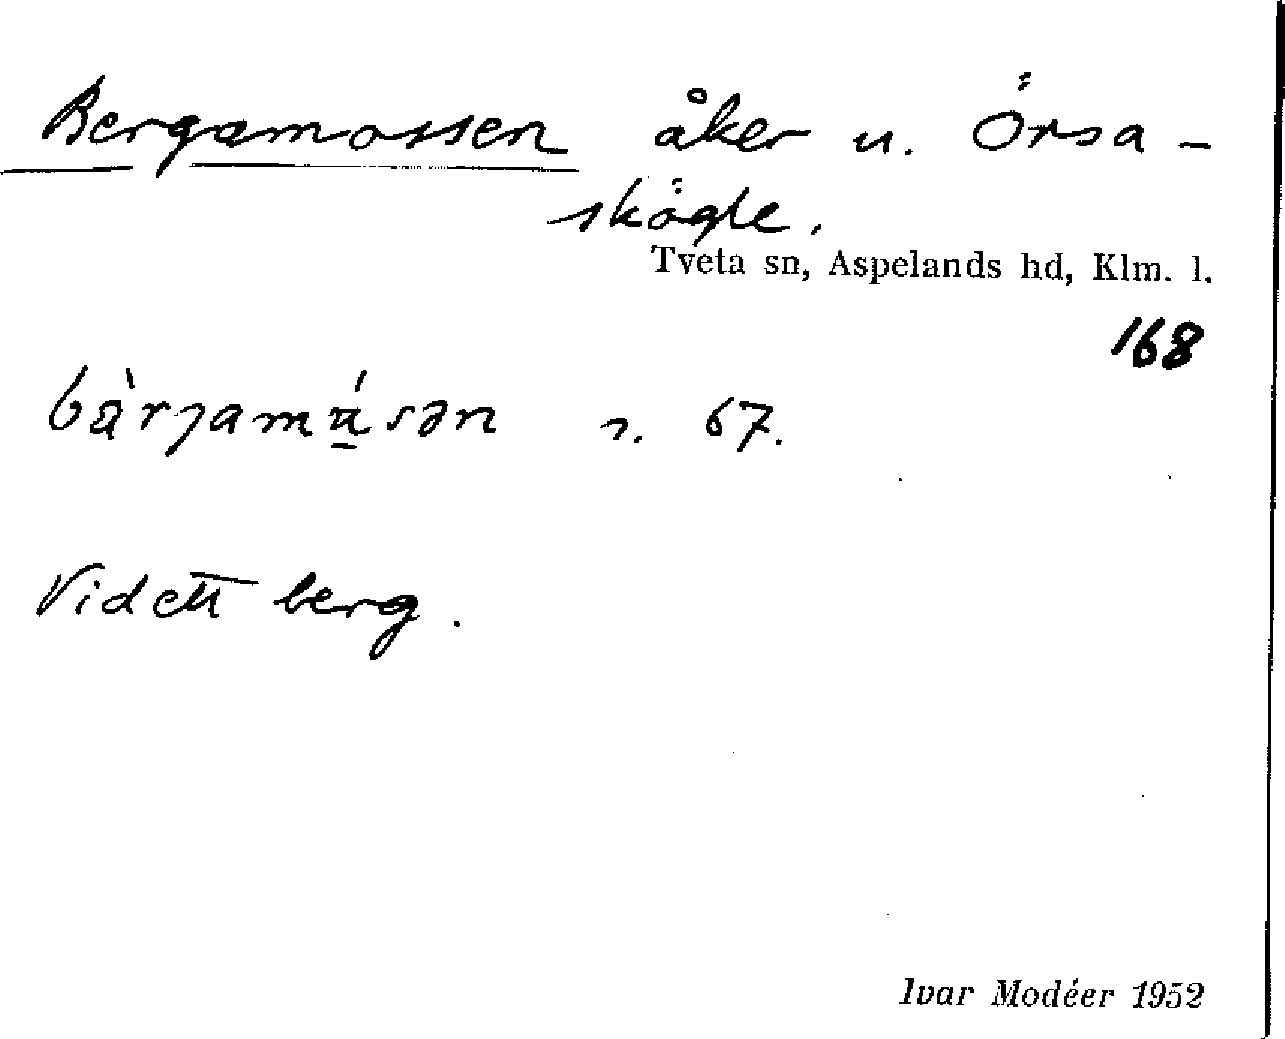 Bergamossen åker u. Örsa-
skögle.
Tveta sn, Aspelands hd, Klm. l.
168
bä̀rjamú̱sən s. 67.
Vid ett berg.
Ivar Modéer 1952